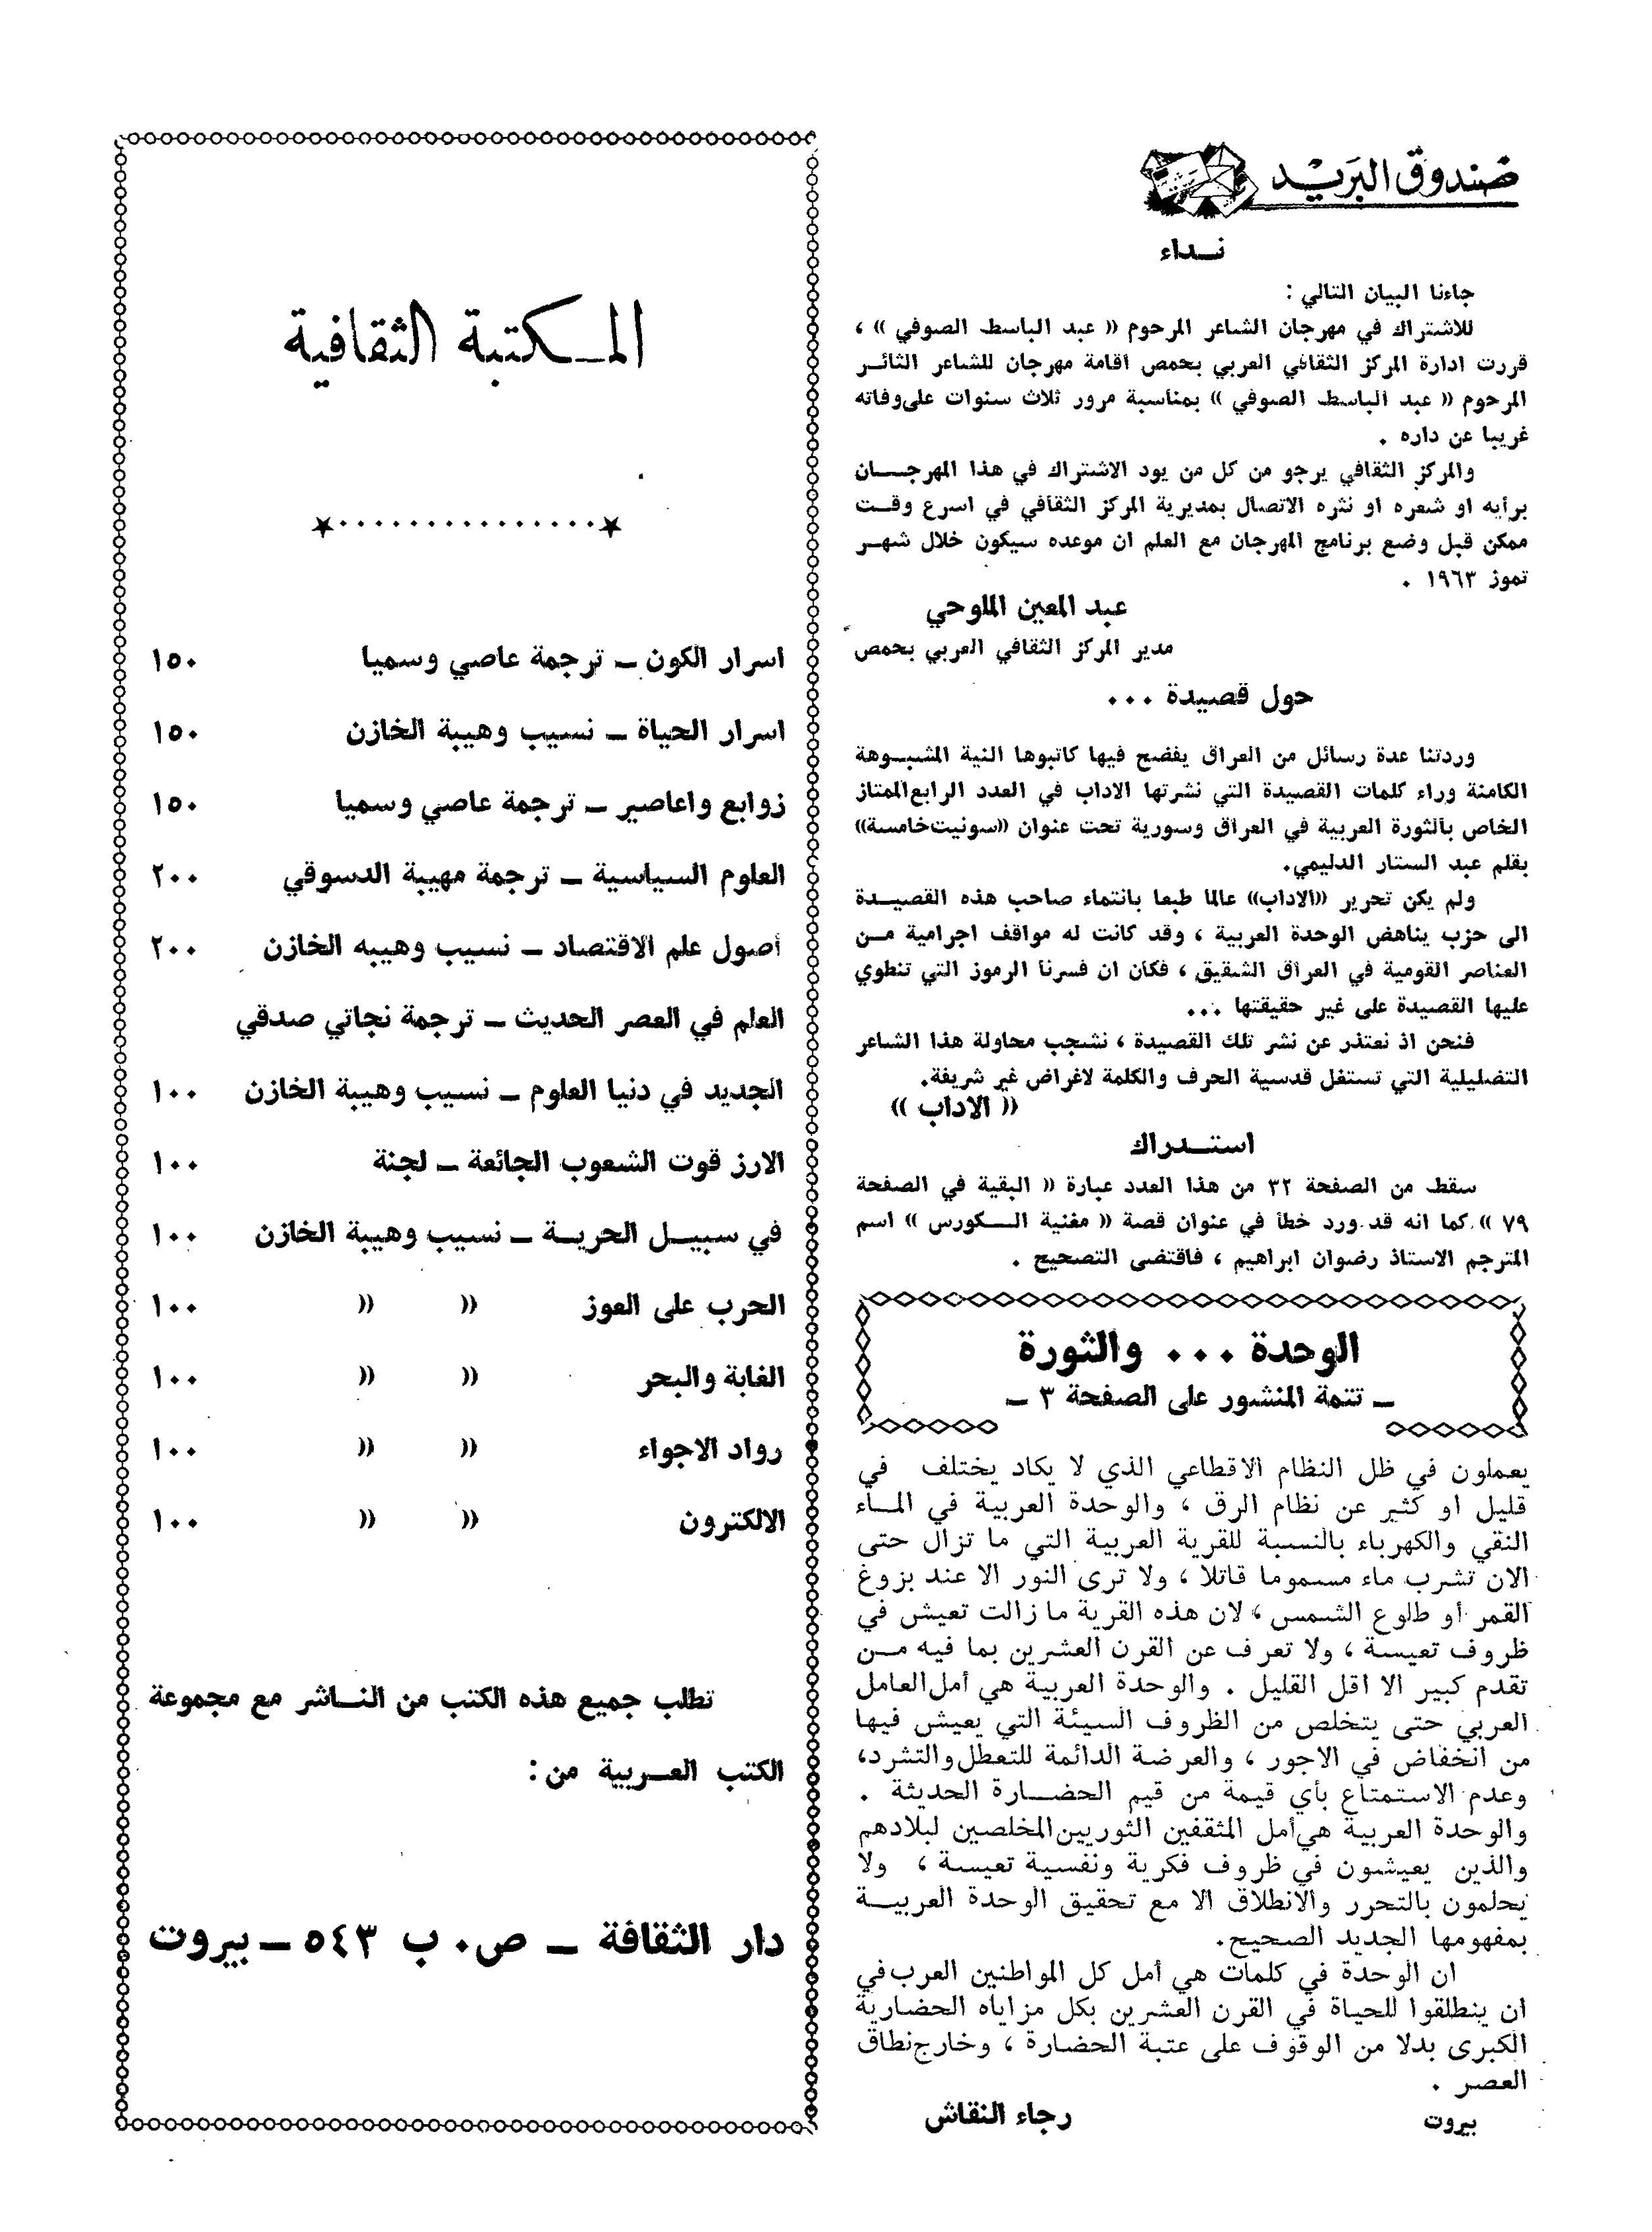 صندوق البريد
نـداء
جاءنا البيان التالي :
للاشتراك في مهرجان الشاعر المرحوم « عبد الباسط الصوفي » ،
قررت ادارة المركز الثقافي العربي بحمص اقامة مهرجان للشاعر الثائـر
المرحوم « عبد الباسط الصوفي » بمناسبة مرور ثلاث سنوات على وفاته
غريبا عن داره .
والمركز الثقافي يرجو من كل من يود الاشتراك في هذا المهرجـــان
برأيه او شعره او نثره الاتصال بمديرية المركز الثقافي في اسرع وقـت
ممكن قبل وضع برنامج المهرجان مع العلم ان موعده سيكون خلال شهـر
تموز ١٩٦٣ .
عبد المعين الملوحي
مدير المركز الثقافي العربي بحمص
حول قصيدة ...
وردتنا عدة رسائل من العراق يفضح فيها كاتبوها النية المشبـوهة
الكامنة وراء كلمات القصيدة التي نشرتها الاداب في العدد الرابع الممتاز
الخاص بالثورة العربية في العراق وسورية تحت عنوان «سونيت خامسة»
بقلم عبد الستار الدليمي.
ولم يكن تحرير «الاداب» عالما طبعا بانتماء صاحب هذه القصيـدة
الى حزب يناهض الوحدة العربية ، وقد كانت له مواقف اجرامية مـن
العناصر القومية في العراق الشقيق ، فكان ان فسرنا الرموز التي تنطوي
عليها القصيدة على غير حقيقتها ...
فنحن اذ نعتذر عن نشر تلك القصيدة ، نشجب محاولة هذا الشاعر
التضليلية التي تستغل قدسية الحرف والكلمة لاغراض غير شريفة.
« الاداب »
استـدراك
سقط من الصفحة ٣٢ من هذا العدد عبارة « البقية في الصفحة
٧٩ » كما انه قد ورد خطأ في عنوان قصة « مغنية الـكورس » اسم
المترجم الاستاذ رضوان ابراهيم ، فاقتضى التصحيح .
الوحدة ... والثورة
ـ تتمة المنشور على الصفحة ٣ ـ
يعملون في ظل النظام الاقطاعي الذي لا يكاد يختلف في
قليل او كثير عن نظام الرق ، والوحدة العربية في المـاء
النقي والكهرباء بالنسبة للقرية العربية التي ما تزال حتى
الان تشرب ماء مسموما قاتلا ، ولا ترى النور الا عند بزوغ
القمر أو طلوع الشمس ، لان هذه القرية ما زالت تعيش في
ظروف تعيسة ، ولا تعرف عن القرن العشرين بما فيه مـن
تقدم كبير الا اقل القليل . والوحدة العربية هي أمل العامل
العربي حتى يتخلص من الظروف السيئة التي يعيش فيها
من انخفاض في الاجور ، والعرضة الدائمة للتعطل والتشرد،
وعدم الاستمتاع بأي قيمة من قيم الحضـارة الحديثة .
والوحدة العربية هي أمل المثقفين الثوريين المخلصين لبلادهم
والذين يعيشون في ظروف فكرية ونفسية تعيسة ، ولا
يحلمون بالتحرر والانطلاق الا مع تحقيق الوحدة العربيـة
بمفهومها الجديد الصحيح.
ان الوحدة في كلمات هي أمل كل المواطنين العرب في
ان ينطلقوا للحياة في القرن العشرين بكل مزاياه الحضارية
الكبرى بدلا من الوقوف على عتبة الحضارة ، وخارج نطاق
العصر .
بيروت رجاء النقاش
المـكتبة الثقافية
اسرار الكون ـ ترجمة عاصي وسميا ١٥٠
اسرار الحياة ـ نسيب وهيبة الخازن ١٥٠
زوابع واعاصير ـ ترجمة عاصي وسميا ١٥٠
العلوم السياسية ـ ترجمة مهيبة الدسوقي ٢٠٠
أصول علم الاقتصاد ـ نسيب وهيبه الخازن ٢٠٠
العلم في العصر الحديث ـ ترجمة نجاتي صدقي
الجديد في دنيا العلوم ـ نسيب وهيبة الخازن ١٠٠
الارز قوت الشعوب الجائعة ـ لجنة ١٠٠
في سبيـل الحريـة ـ نسيب وهيبة الخازن ١٠٠
الحرب على العوز « « ١٠٠
الغابة والبحر « « ١٠٠
رواد الاجواء « « ١٠٠
الالكترون « « ١٠٠
تطلب جميع هذه الكتب من النـاشر مع مجموعة
الكتب العـربية من:
دار الثقافة ـ ص. ب ٥٤٣ ـ بيروت